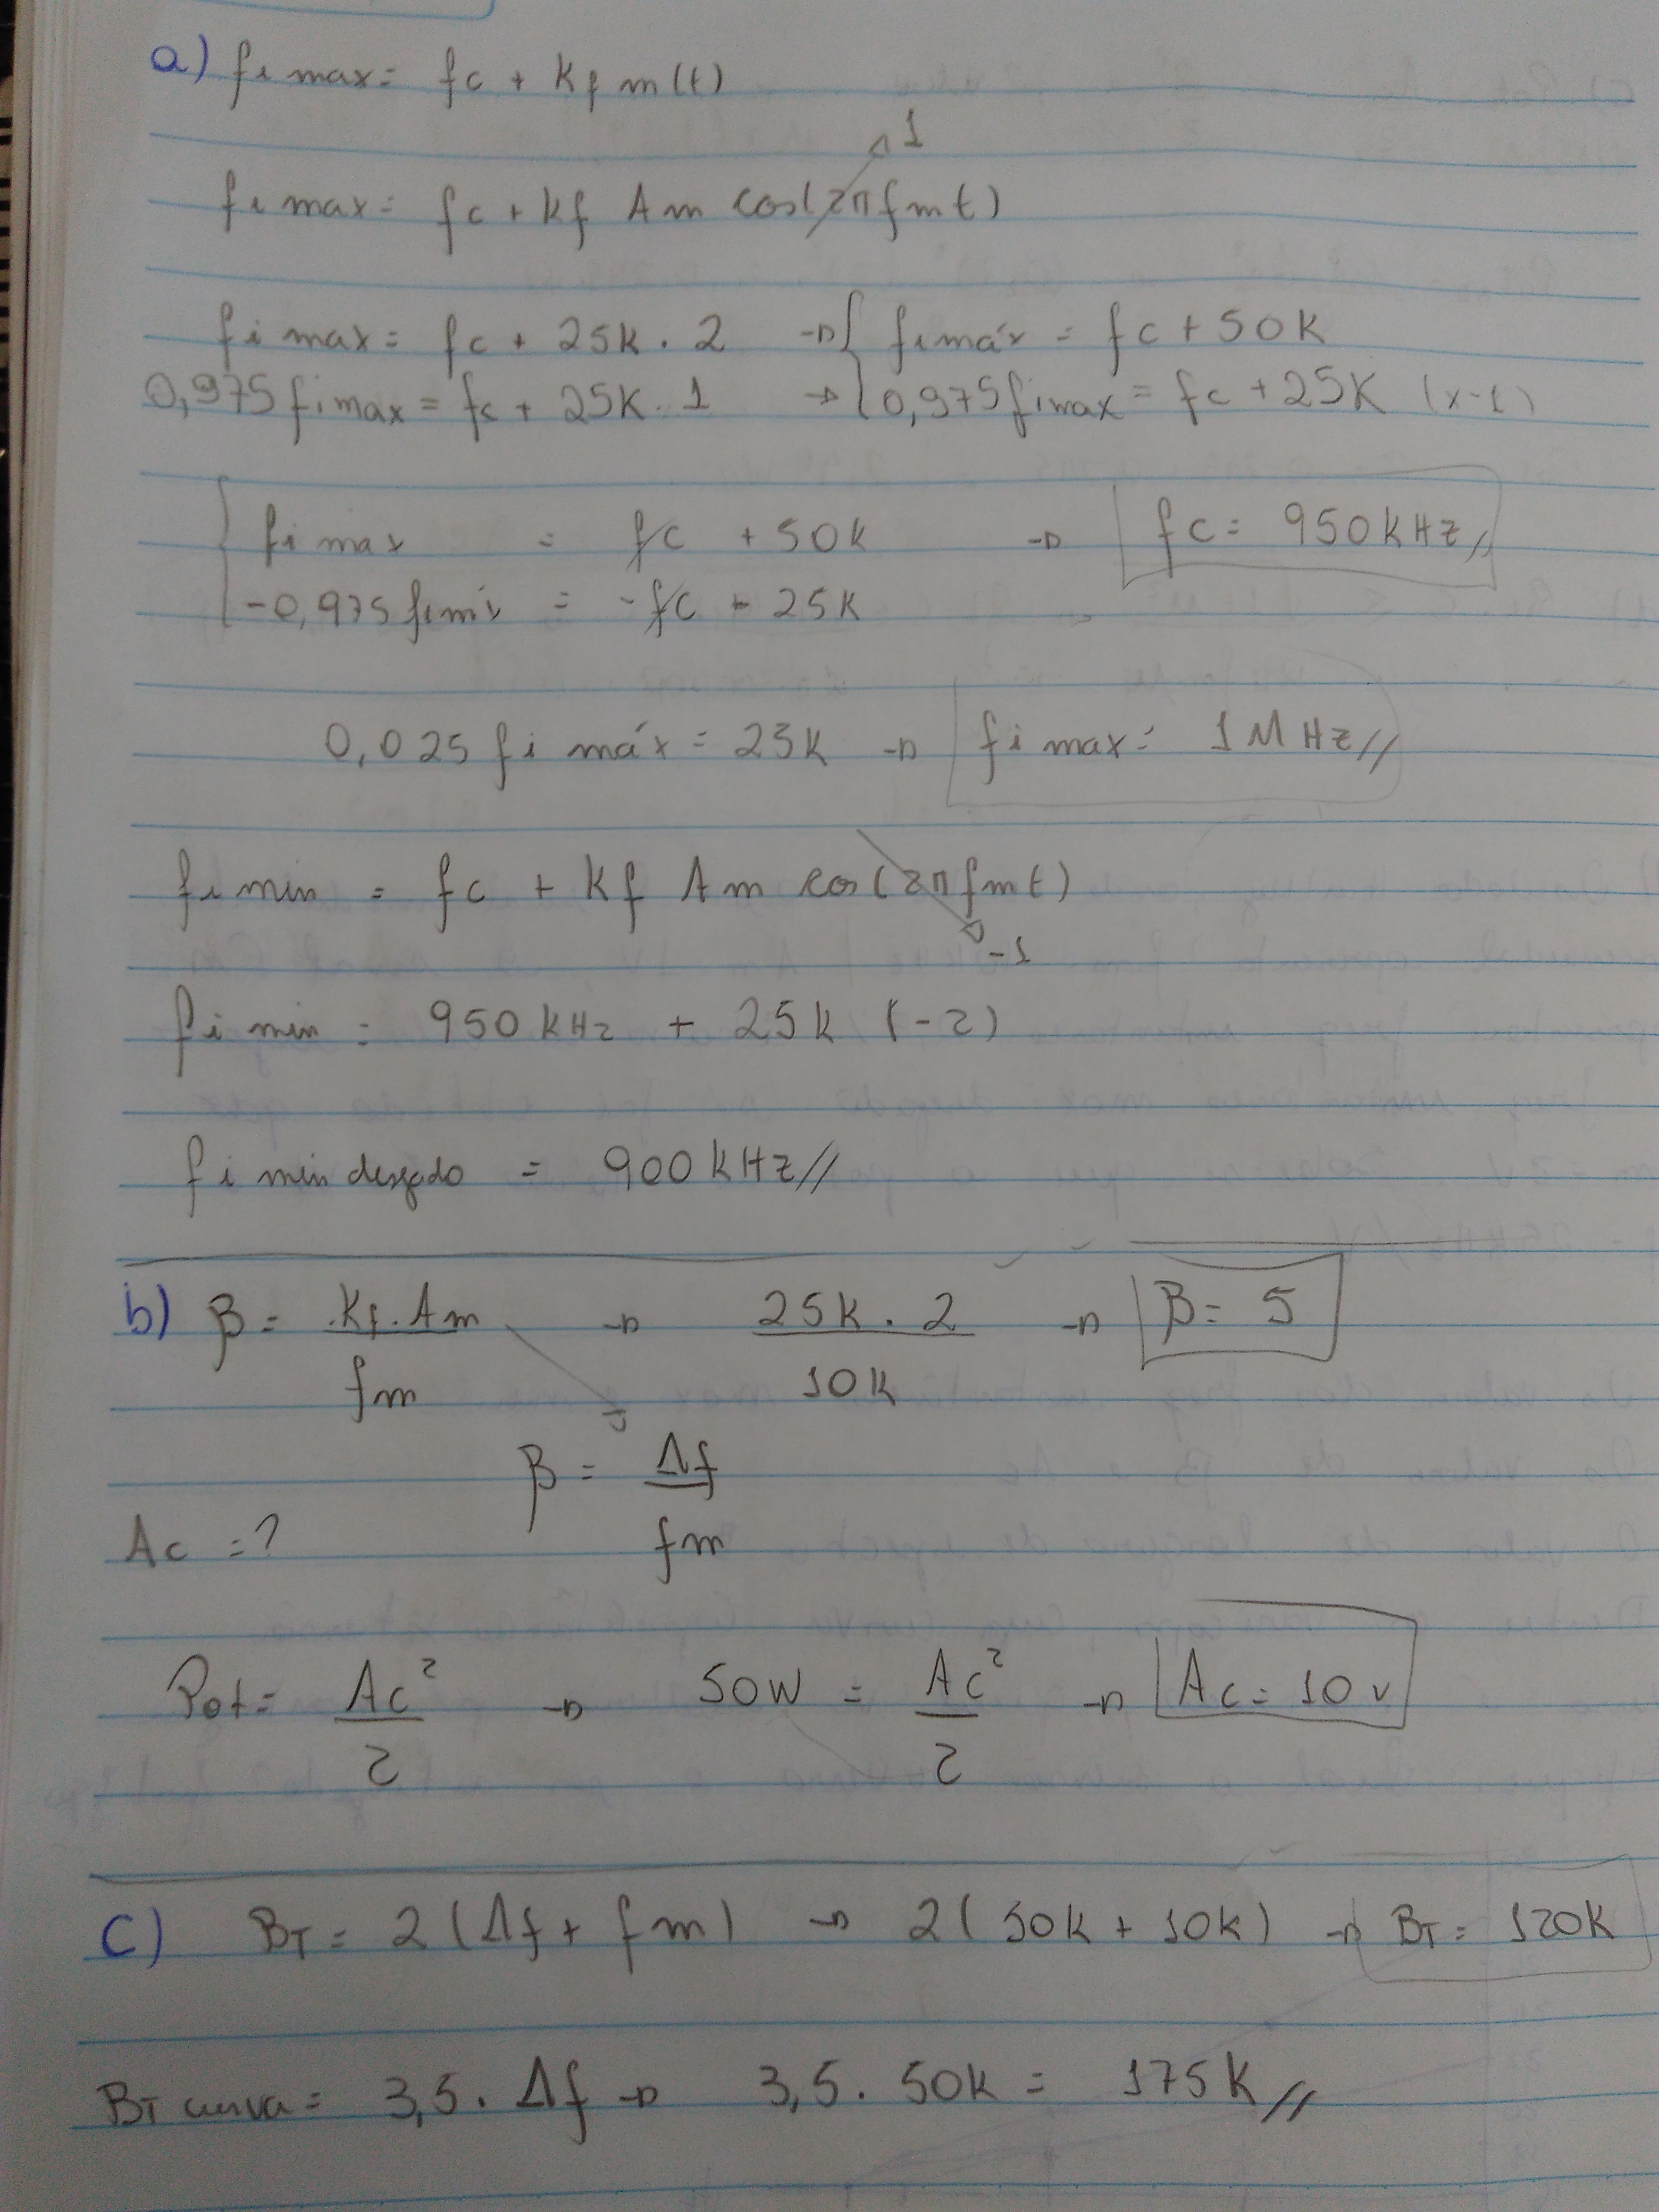 a) fi max = fc + Kf m(t)
1
fi max = fc + Kf Am cos(2π fm t)
fi max = fc + 25K . 2 → { fi máx = fc + 50K
0,975 fi max = fc + 25K . 1 → { 0,975 fi max = fc + 25K (x-1)
{ fi max = fc + 50K → fc = 950 KHz //
-0,975 fi má = - fc - 25K
0,025 fi máx = 25K → fi max = 1 M Hz //
fi min = fc + Kf Am cos(2π fm t)
-1
fi min = 950 KHz + 25K (-2)
fi min desejado = 900 KHz //
b) β = Kf . Am / fm → 25K . 2 / 10K → β = 5
β = Δf / fm
Ac = ?
Pot = Ac² / 2 → 50W = Ac² / 2 → Ac = 10 v
c) BT = 2 (Δf + fm) → 2 (50K + 10K) → BT = 120K
BT curva = 3,5 . Δf → 3,5 . 50K = 175K //